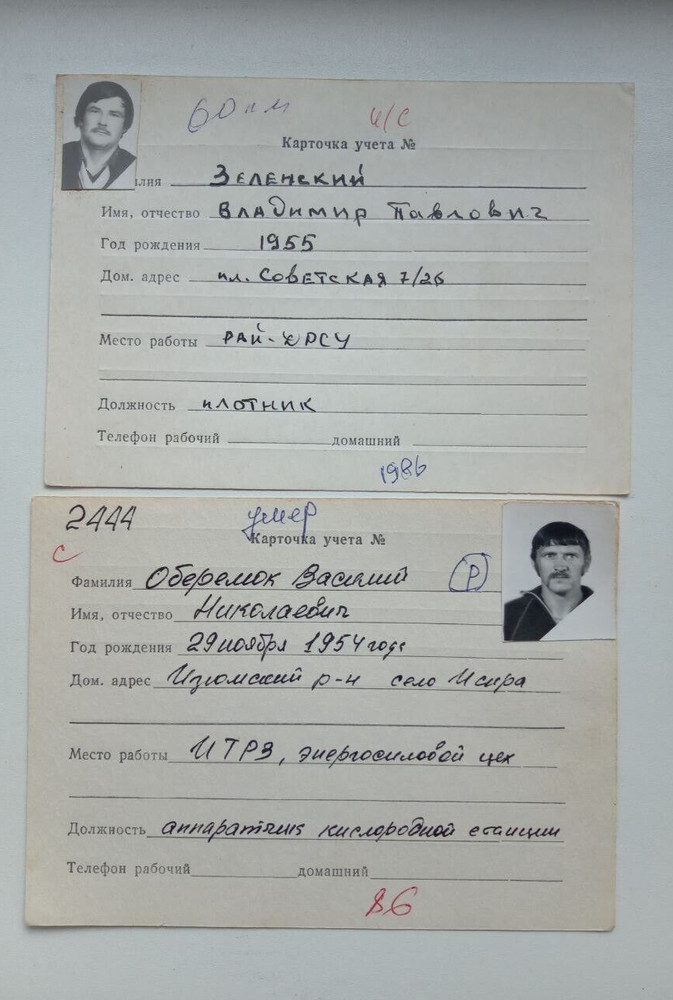 60 км
и/с
Карточка учета №
илия Зеленский
Имя, отчество Владимир Павлович
Год рождения 1955
Дом. адрес пл. Советская 7/26
Место работы РАЙ-
Должность плотник
Телефон рабочий домашний
1986
2444
умер
Карточка учета №
с
Фамилия Оберемок Василий
Р
Имя, отчество Николаевич
Год рождения 29 ноября 1954 года
Дом. адрес Изюмский р-н село
Место работы ИТРЗ, энергосиловой цех
Должность аппаратчик кислородной станции
Телефон рабочий домашний
86